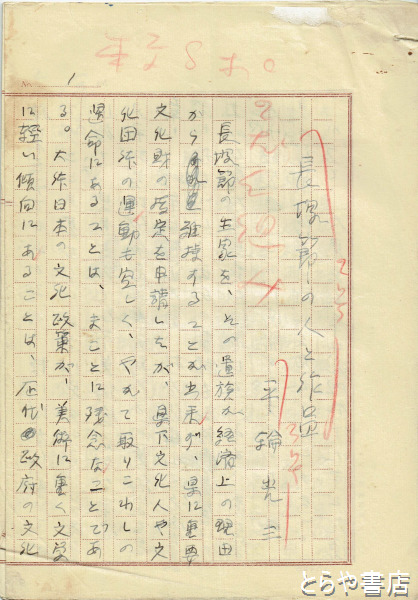 No. 1
本文8ポ。
2行
長塚節の人と作品
2行ど
平輪光三
3行
長塚節の生家を、その遺族が経済上の理由
から維持することが出来ず、県に重要
文化財の指定を申請したが、県下文化人や文
化団体の運動も空しく、やがて取りこわしの
運命にあることは、まことに残念なことであ
る。大体日本の文化政策が、美術に重く文学
に軽い傾向にあることは、歴代の政府の文化
とらや書店